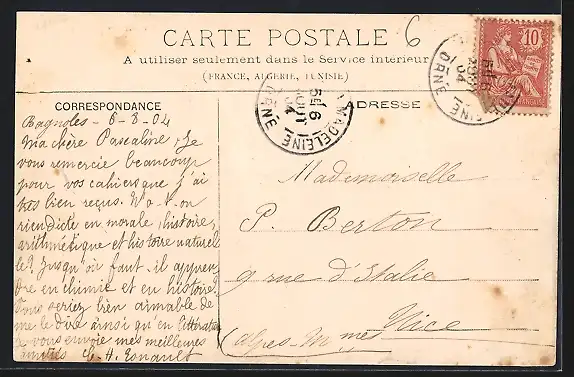 CARTE POSTALE 6
A utiliser seulement dans le Service intérieur
(FRANCE, ALGERIE, TUNISIE)
10
FRANÇAISE
LA MADELEINE
6
AOUT
04
ORNE
CORRESPONDANCE
ADRESSE
Bagnoles - 6-8-04
Ma chère Pascaline, Je
vous remercie beaucoup
pour vos cahiers que j'ai
très bien reçus. N'a-t-on
rien dicté en morale, histoire,
arithmétique et histoire naturel
le? Jusqu'où faut-il appren
dre en chimie et en histoire?
Vous seriez bien aimable de
me le dire ainsi qu'en littérature
Je vous envoie mes meilleures
amitiés
Mademoiselle
P. Berton
9 rue d'Italie
Nice
(Alpes-Mmes)